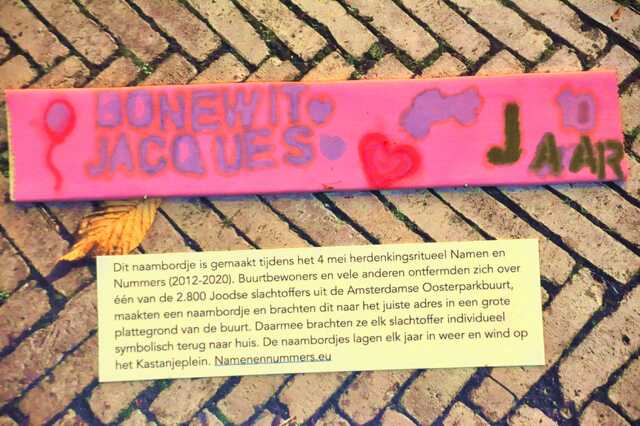 BONEWIT
JACQUES
JAAR
Dit naambordje is gemaakt tijdens het 4 mei herdenkingsritueel Namen en
Nummers (2012-2020). Buurtbewoners en vele anderen ontfermden zich over
één van de 2.800 Joodse slachtoffers uit de Amsterdamse Oosterparkbuurt,
maakten een naambordje en brachten dit naar het juiste adres in een grote
plattegrond van de buurt. Daarmee brachten ze elk slachtoffer individueel
symbolisch terug naar huis. De naambordjes lagen elk jaar in weer en wind op
het Kastanjeplein. Namenennummers.eu